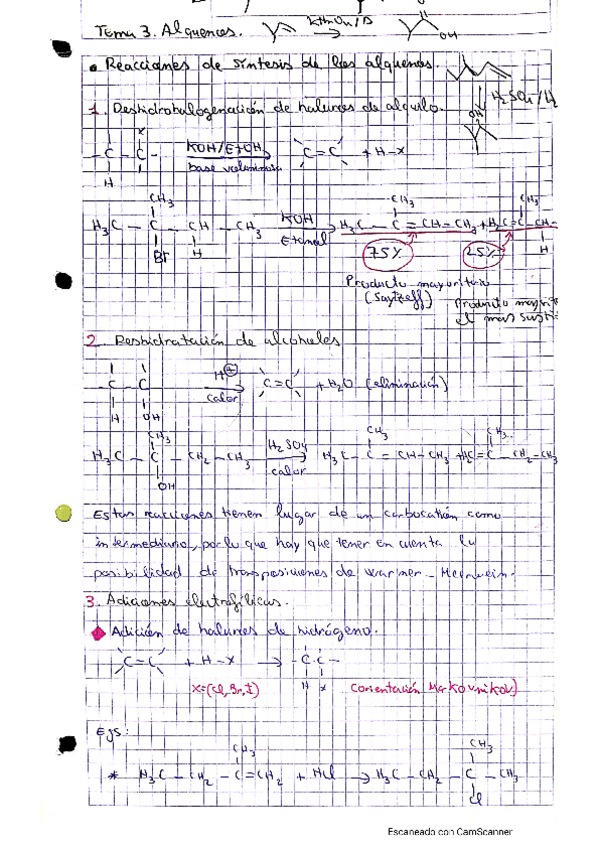 Tema 3. Alquenos.
KMnO4/Δ
OH
• Reacciones de síntesis de los alquenos.
H2SO4/H
OH
1. Deshidrohalogenación de haluros de alquilo.
X
- C - C -
H
KOH/EtOH
C = C + H-X
CH3
H3C - C - CH - CH3
Br H
KOH
Etanol
CH3
H3C - C = CH - CH3 +
CH3
H2C = C - CH -
H
75% 25%
Producto mayoritario
(Saytzeff)
Producto mayorit
el mas susti
2. Deshidratación de alcoholes
C C
H OH
H⊕
calor
C = C + H2O (eliminación)
CH3
H3C - C - CH2 - CH3
OH
H2SO4
calor
CH3
H3C - C = CH - CH3 +
CH3
H2C = C - CH2 - CH3
Estas reacciones tienen lugar de un carbocatión como
intermediario, por lo que hay que tener en cuenta la
posibilidad de transposiciones de warner - Meerwein.
3. Adiciones electrofílicas.
Adición de haluros de hidrógeno.
C = C + H - X → - C C -
H X
X = (Cl, Br, I) (orientación Markovnikov)
Ejs:
CH3
* H3C - CH2 - C = CH2 + HCl → H3C - CH2 - C - CH3
CH3
Cl
Escaneado con CamScanner